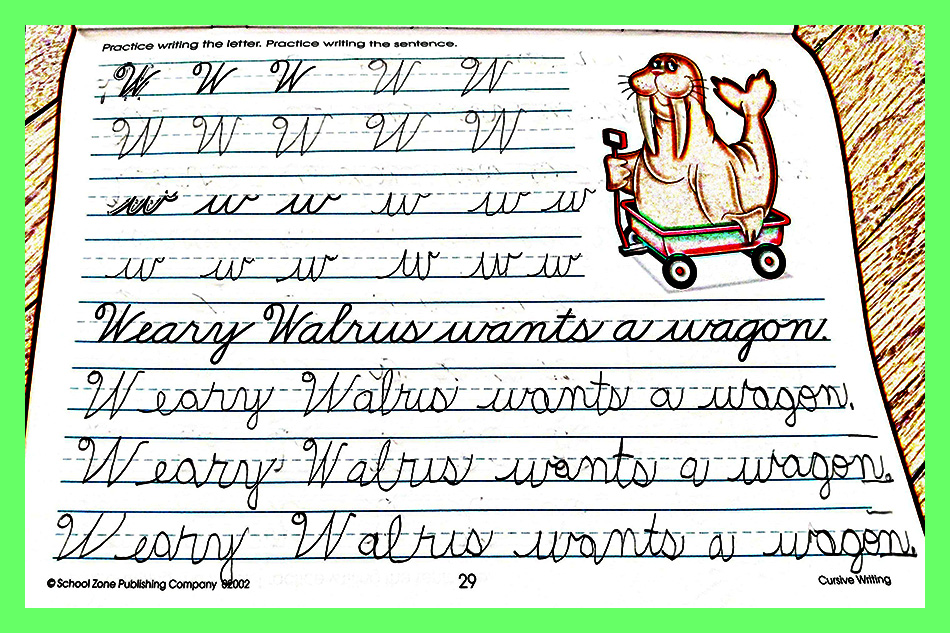 Practice writing the letter. Practice writing the sentence.
W W W W W
W W W W W
w w w w w w
w w w w w w
Weary Walrus wants a wagon.
Weary Walrus wants a wagon.
Weary Walrus wants a wagon.
Weary Walrus wants a wagon.
©School Zone Publishing Company 02002 29 Cursive Writing